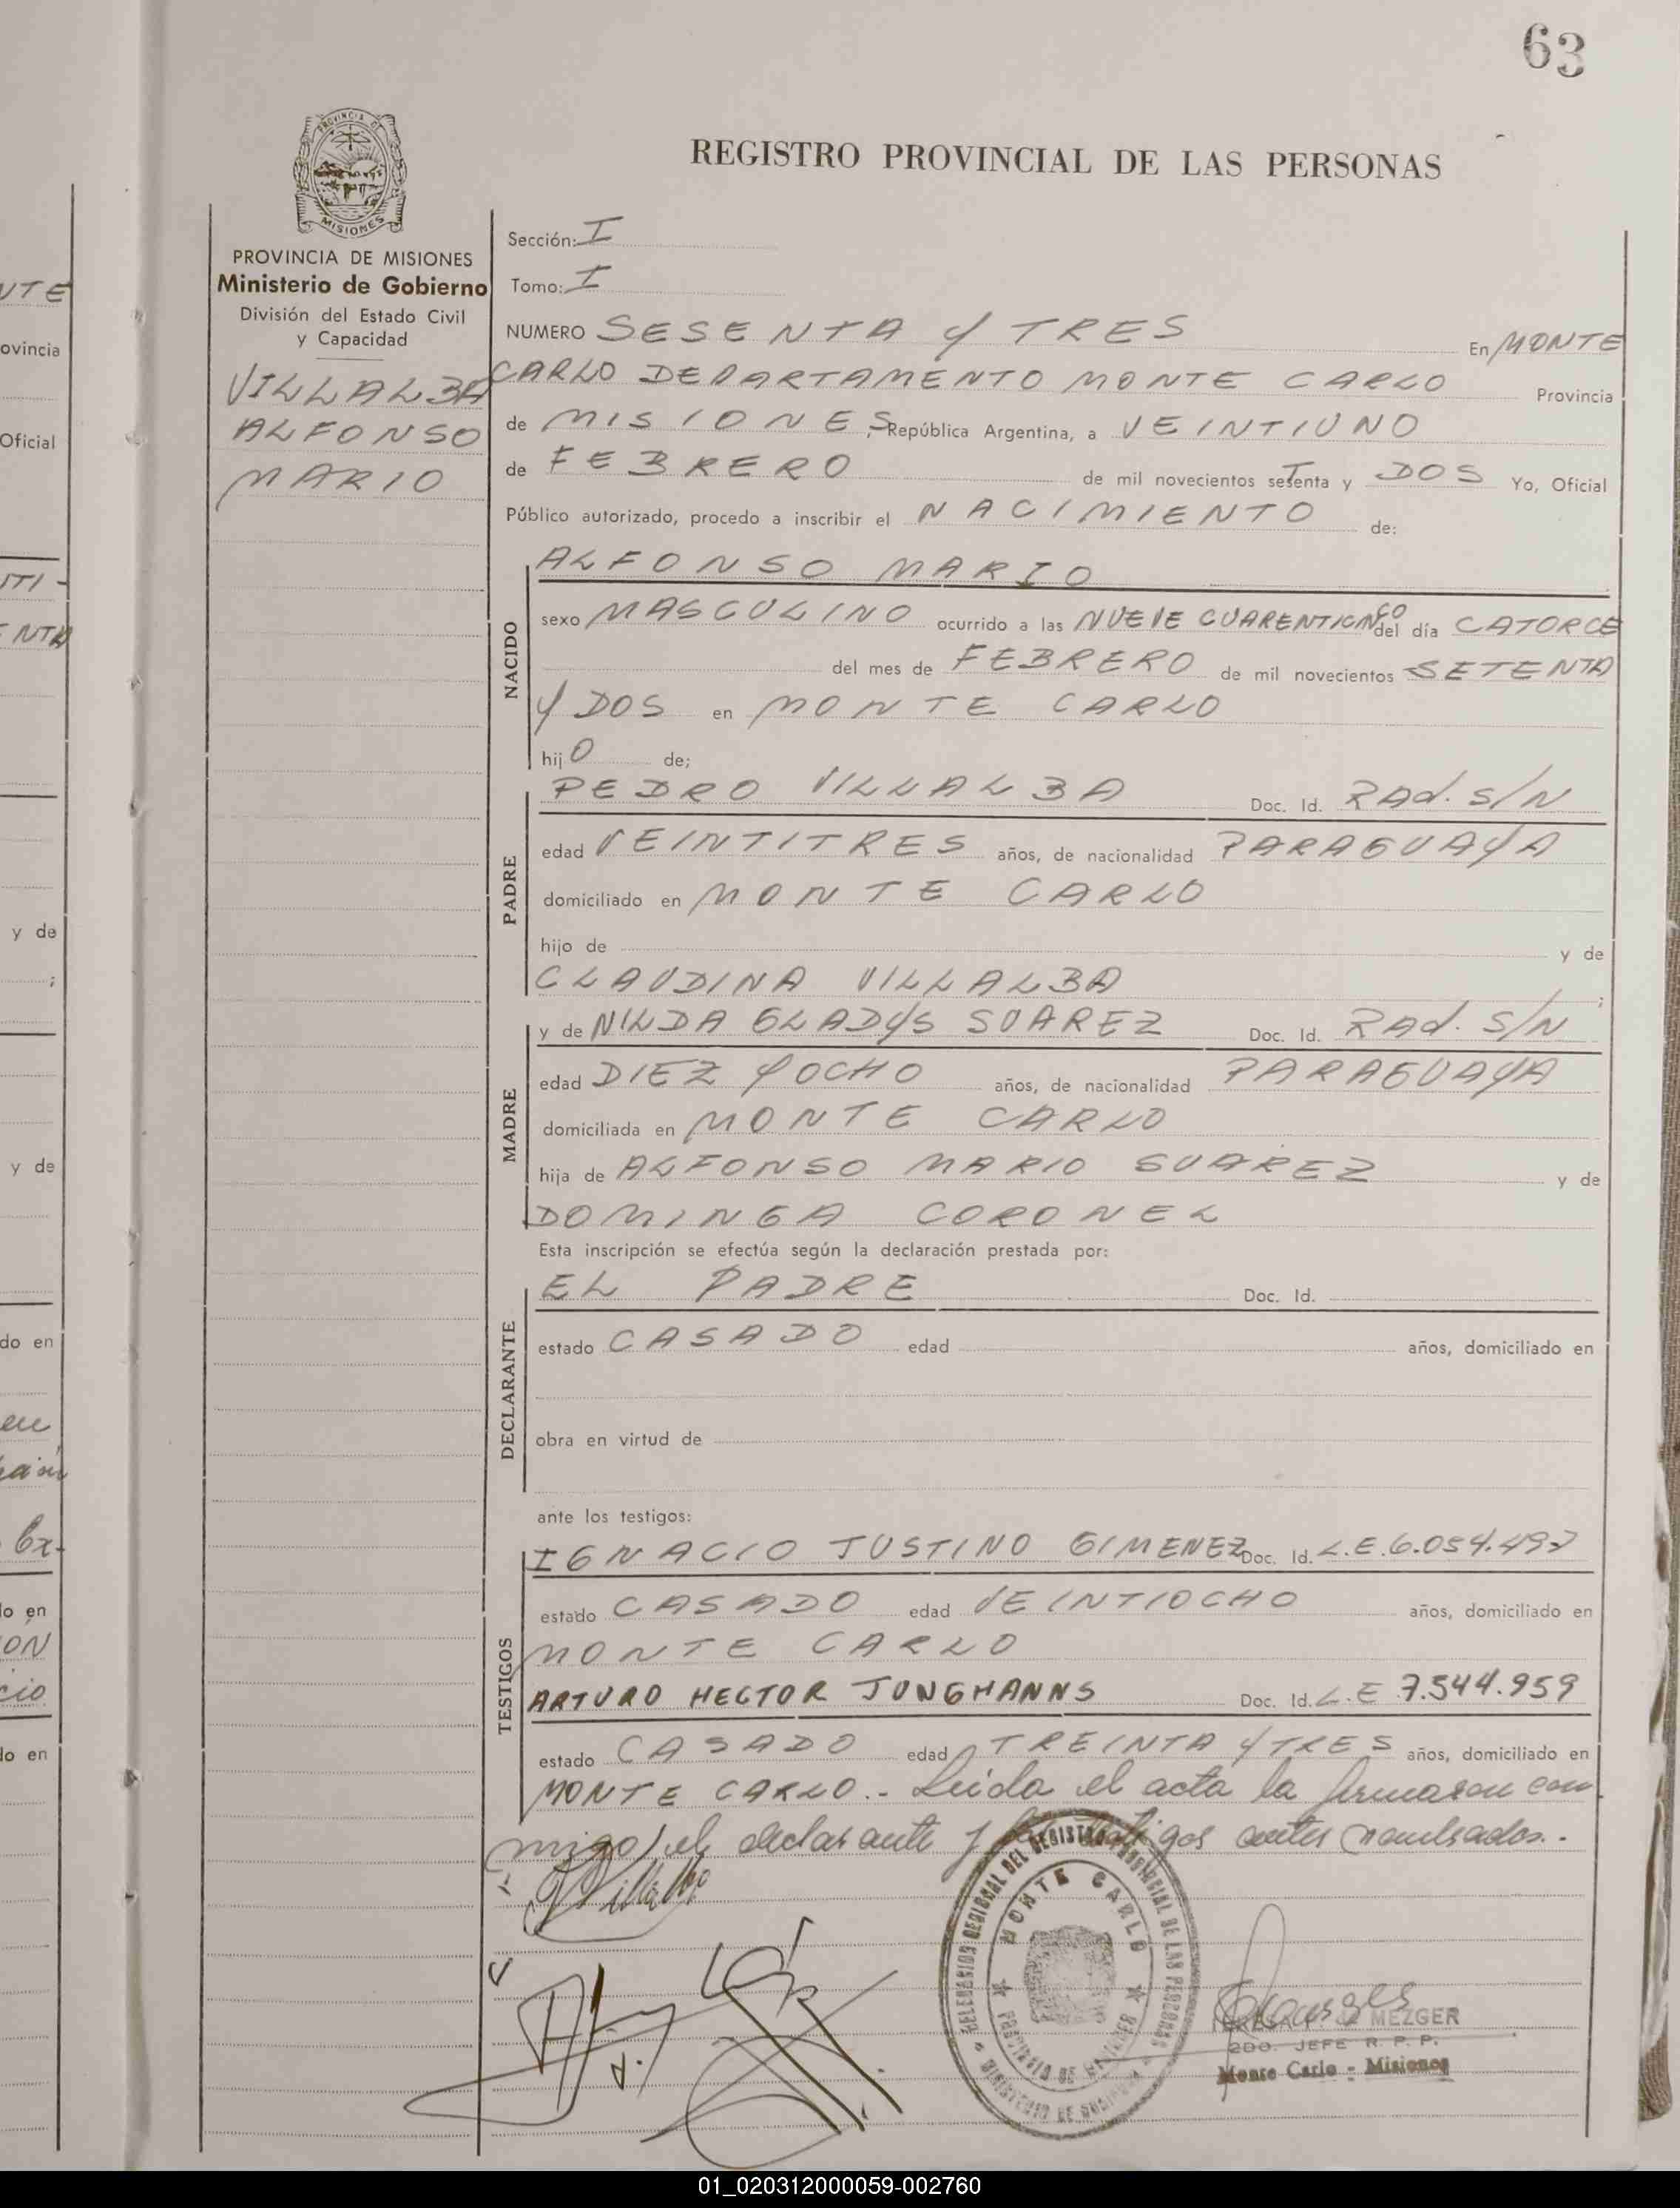 63
REGISTRO PROVINCIAL DE LAS PERSONAS
PROVINCIA DE MISIONES
Ministerio de Gobierno
División del Estado Civil
y Capacidad
VILLALBA
ALFONSO
MARIO
Sección: I
Tomo: I
NUMERO SESENTA Y TRES En MONTE
CARLO DEPARTAMENTO MONTE CARLO Provincia
de MISIONES, República Argentina, a VEINTIUNO
de FEBRERO de mil novecientos setenta y DOS Yo, Oficial
Público autorizado, procedo a inscribir el NACIMIENTO de:
ALFONSO MARIO
NACIDO
sexo MASCULINO ocurrido a las NUEVE CUARENTICINCO del día CATORCE
del mes de FEBRERO de mil novecientos SETENTA
Y DOS en MONTE CARLO
hijO de;
PEDRO VILLALBA Doc. Id. RAd. S/N
PADRE
edad VEINTITRES años, de nacionalidad PARAGUAYA
domiciliado en MONTE CARLO
hijo de y de
CLAUDINA VILLALBA ;
y de NILDA GLADYS SUAREZ Doc. Id. RAd. S/N
MADRE
edad DIEZ Y OCHO años, de nacionalidad PARAGUAYA
domiciliada en MONTE CARLO
hija de ALFONSO MARIO SUAREZ y de
DOMINGA CORONEL
Esta inscripción se efectúa según la declaración prestada por:
EL PADRE Doc. Id.
DECLARANTE
estado CASADO edad años, domiciliado en
obra en virtud de
ante los testigos:
IGNACIO JUSTINO GIMENEZ Doc. Id. L.E.6.054.492
TESTIGOS
estado CASADO edad VEINTIOCHO años, domiciliado en
MONTE CARLO
ARTURO HECTOR JUNGHANNS Doc. Id. L.E 7.544.959
estado CASADO edad TREINTA Y TRES años, domiciliado en
MONTE CARLO.- Leida el acta la firmaron con
migo, el declarante y los testigos antes
MONTE CARLO
PROVINCIA DE MISIONES
MEZGER
2DO. JEFE R. P. P.
Monte Carlo - Misiones
UTE
ovincia
Oficial
y de
;
y de
do en
en
lo en
ON
cio
lo en
01_020312000059-002760